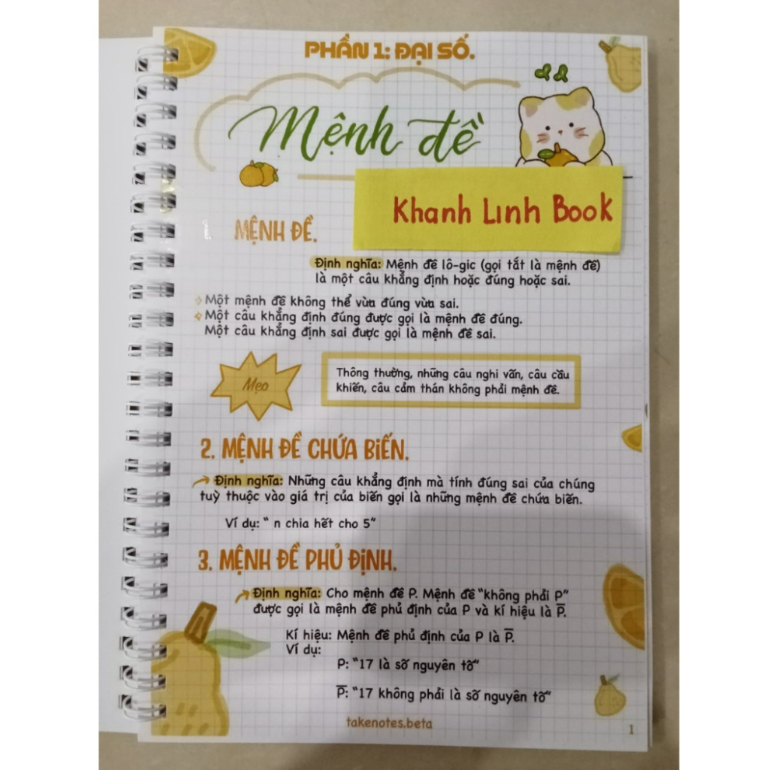 PHẦN 1: ĐẠI SỐ.
Mệnh đề
Khanh Linh Book
MỆNH ĐỀ.
Định nghĩa: Mệnh đề lô-gic (gọi tắt là mệnh đề)
là một câu khẳng định hoặc đúng hoặc sai.
Một mệnh đề không thể vừa đúng vừa sai.
Một câu khẳng định đúng được gọi là mệnh đề đúng.
Một câu khẳng định sai được gọi là mệnh đề sai.
Mẹo
Thông thường, những câu nghi vấn, câu cầu
khiến, câu cảm thán không phải mệnh đề.
2. MỆNH ĐỀ CHỨA BIẾN.
Định nghĩa: Những câu khẳng định mà tính đúng sai của chúng
tuỳ thuộc vào giá trị của biến gọi là những mệnh đề chứa biến.
Ví dụ: “ n chia hết cho 5”
3. MỆNH ĐỀ PHỦ ĐỊNH.
Định nghĩa: Cho mệnh đề P. Mệnh đề “không phải P”
được gọi là mệnh đề phủ định của P và kí hiệu là P̅.
Kí hiệu: Mệnh đề phủ định của P là P̅.
Ví dụ:
P: “17 là số nguyên tố”
P̅: “17 không phải là số nguyên tố”
takenotes.beta
1